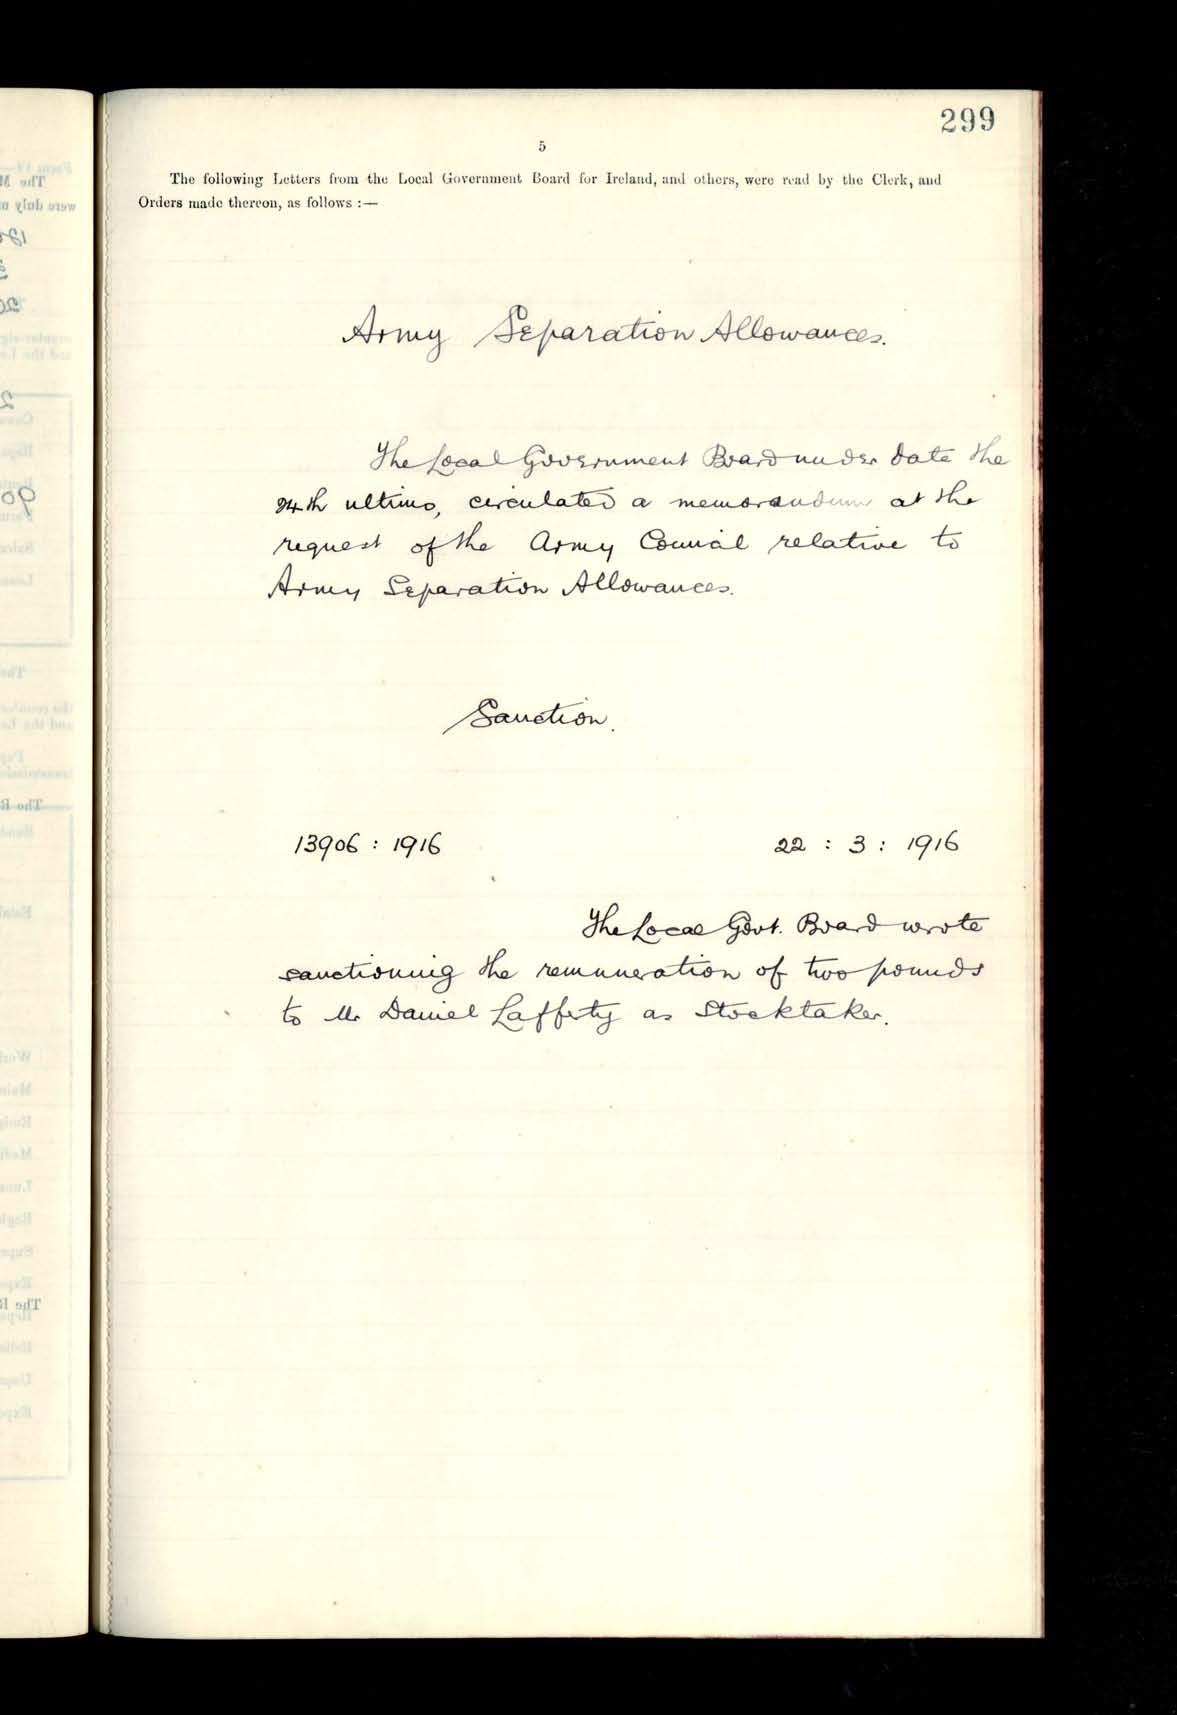 299
5
The following Letters from the Local Government Board for Ireland, and others, were read by the Clerk, and
Orders made thereon, as follows :—
Army Separation Allowances.
The Local Government Board under date the
24th ultimo, circulated a memorandum at the
request of the Army Council relative to
Army Separation Allowances.
Sanction.
13906 : 1916 22 : 3 : 1916
The Local Govt. Board wrote
sanctioning the remuneration of two pounds
to Mr Daniel Lafferty as Stocktaker.